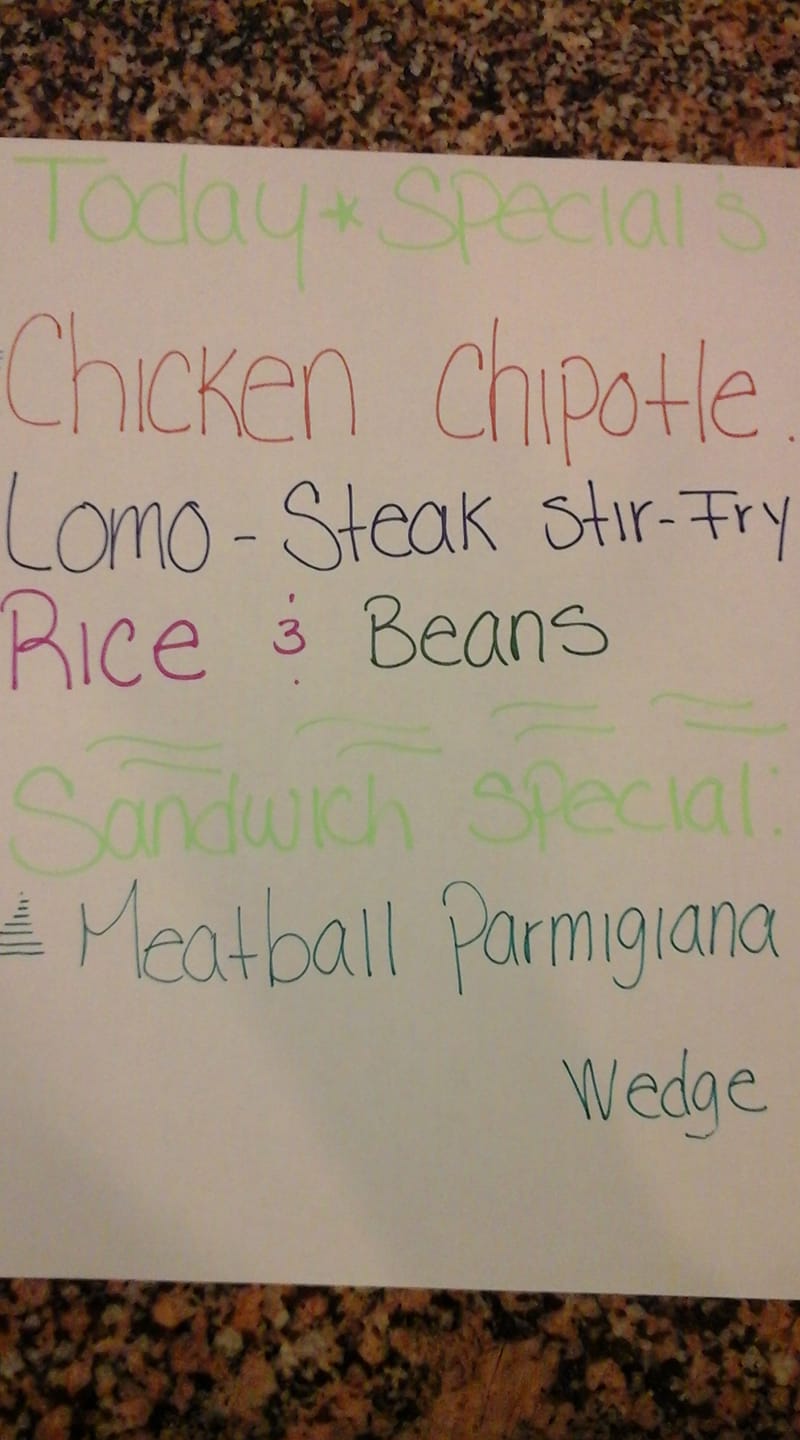 Today * Special's
Chicken Chipotle.
Lomo - Steak Stir-Fry
Rice & Beans
Sandwich Special:
Meatball Parmigiana
Wedge